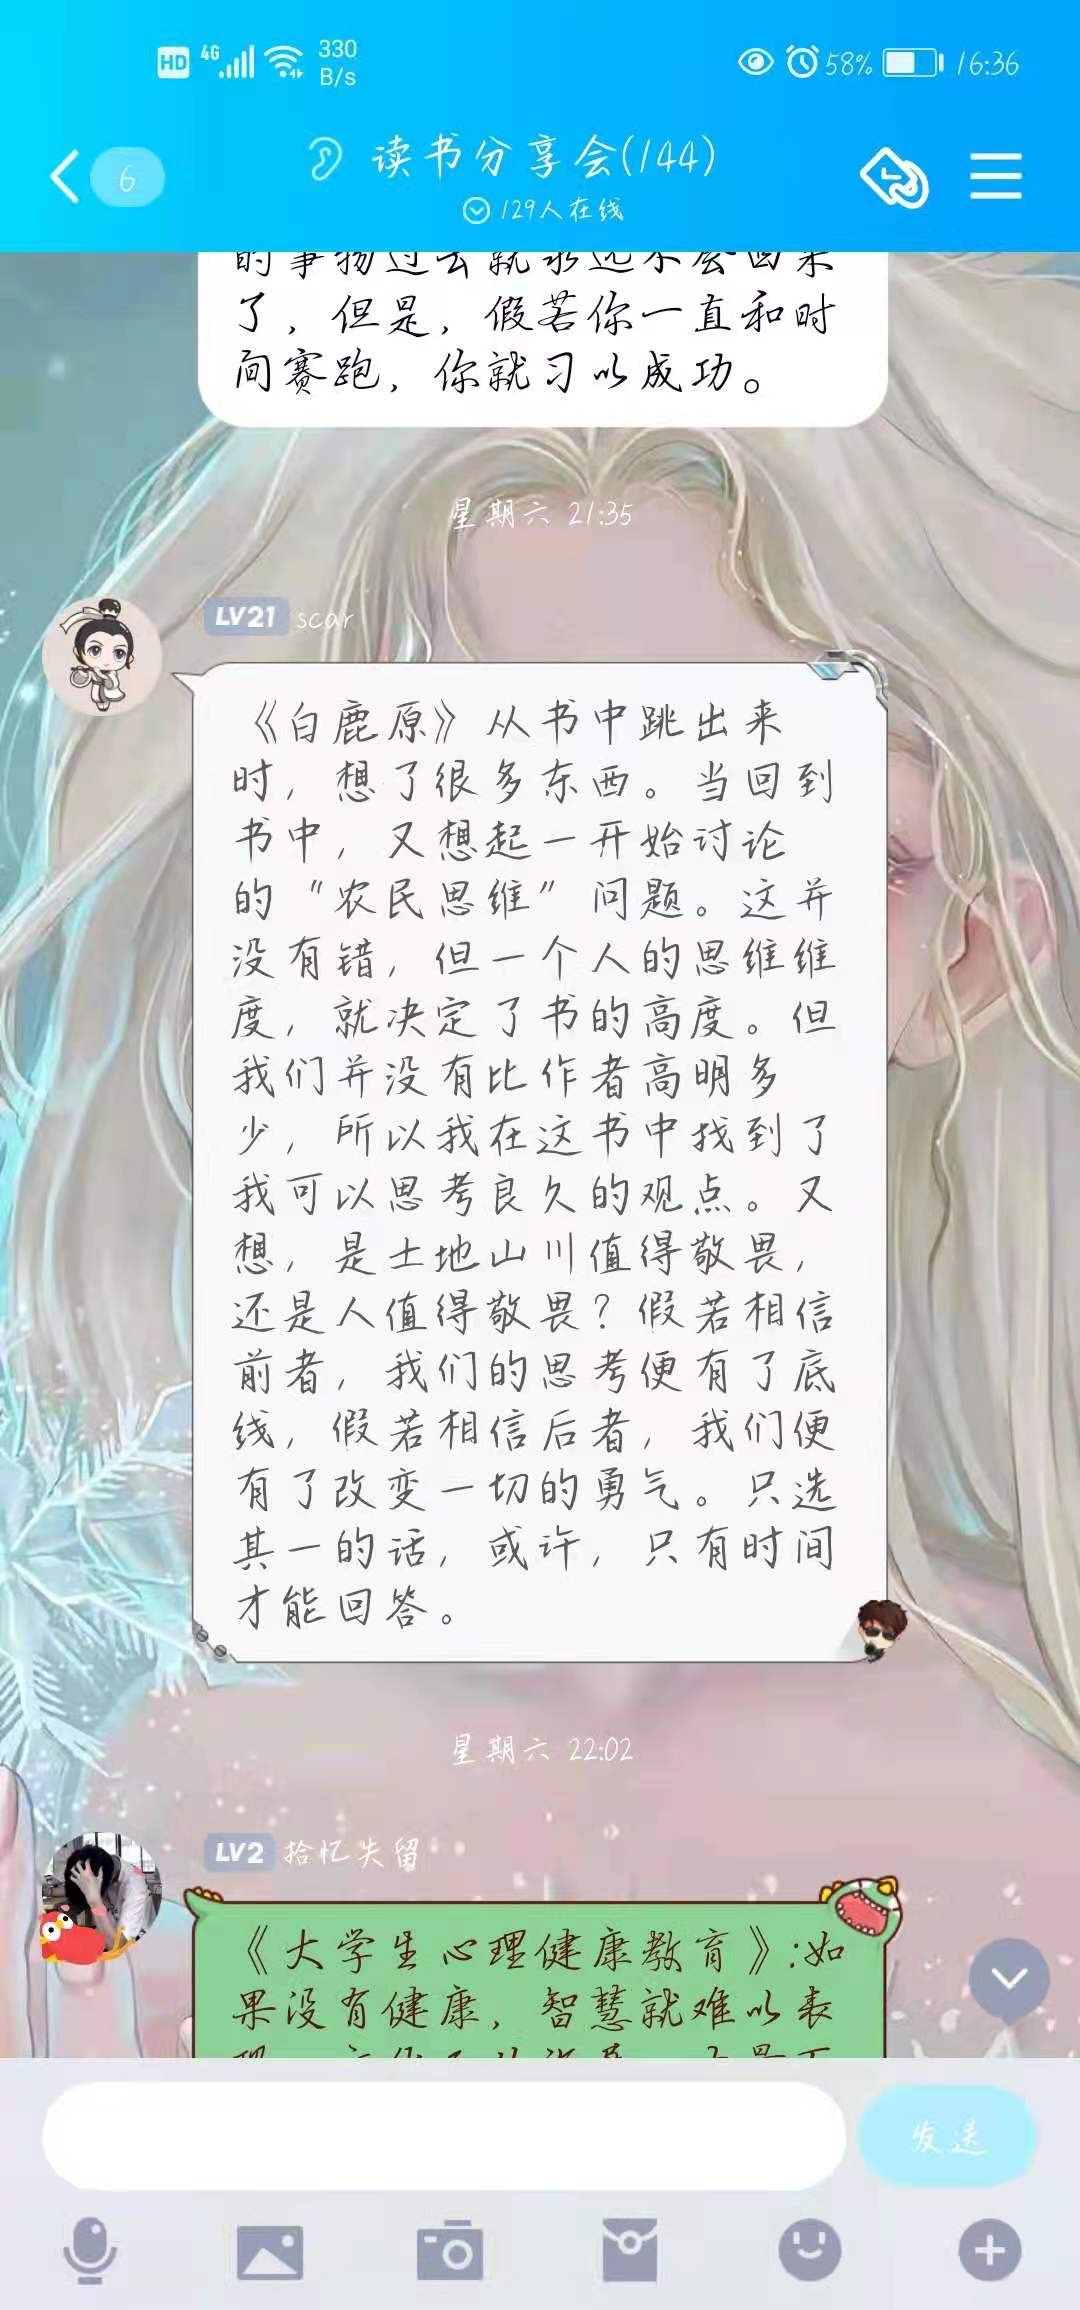 HD 4G 330 B/s 58% 16:36
6 读书分享会(144)
129人在线
的事物过去就永远不会回来
了，但是，假若你一直和时
间赛跑，你就习以成功。
星期六 21:35
LV21 scar
《白鹿原》从书中跳出来
时，想了很多东西。当回到
书中，又想起一开始讨论
的“农民思维”问题。这并
没有错，但一个人的思维维
度，就决定了书的高度。但
我们并没有比作者高明多
少，所以我在这书中找到了
我可以思考良久的观点。又
想，是土地山川值得敬畏，
还是人值得敬畏？假若相信
前者，我们的思考便有了底
线，假若相信后者，我们便
有了改变一切的勇气。只选
其一的话，或许，只有时间
才能回答。
星期六 22:02
LV2 拾忆失留
《大学生心理健康教育》:如
果没有健康，智慧就难以表
发送